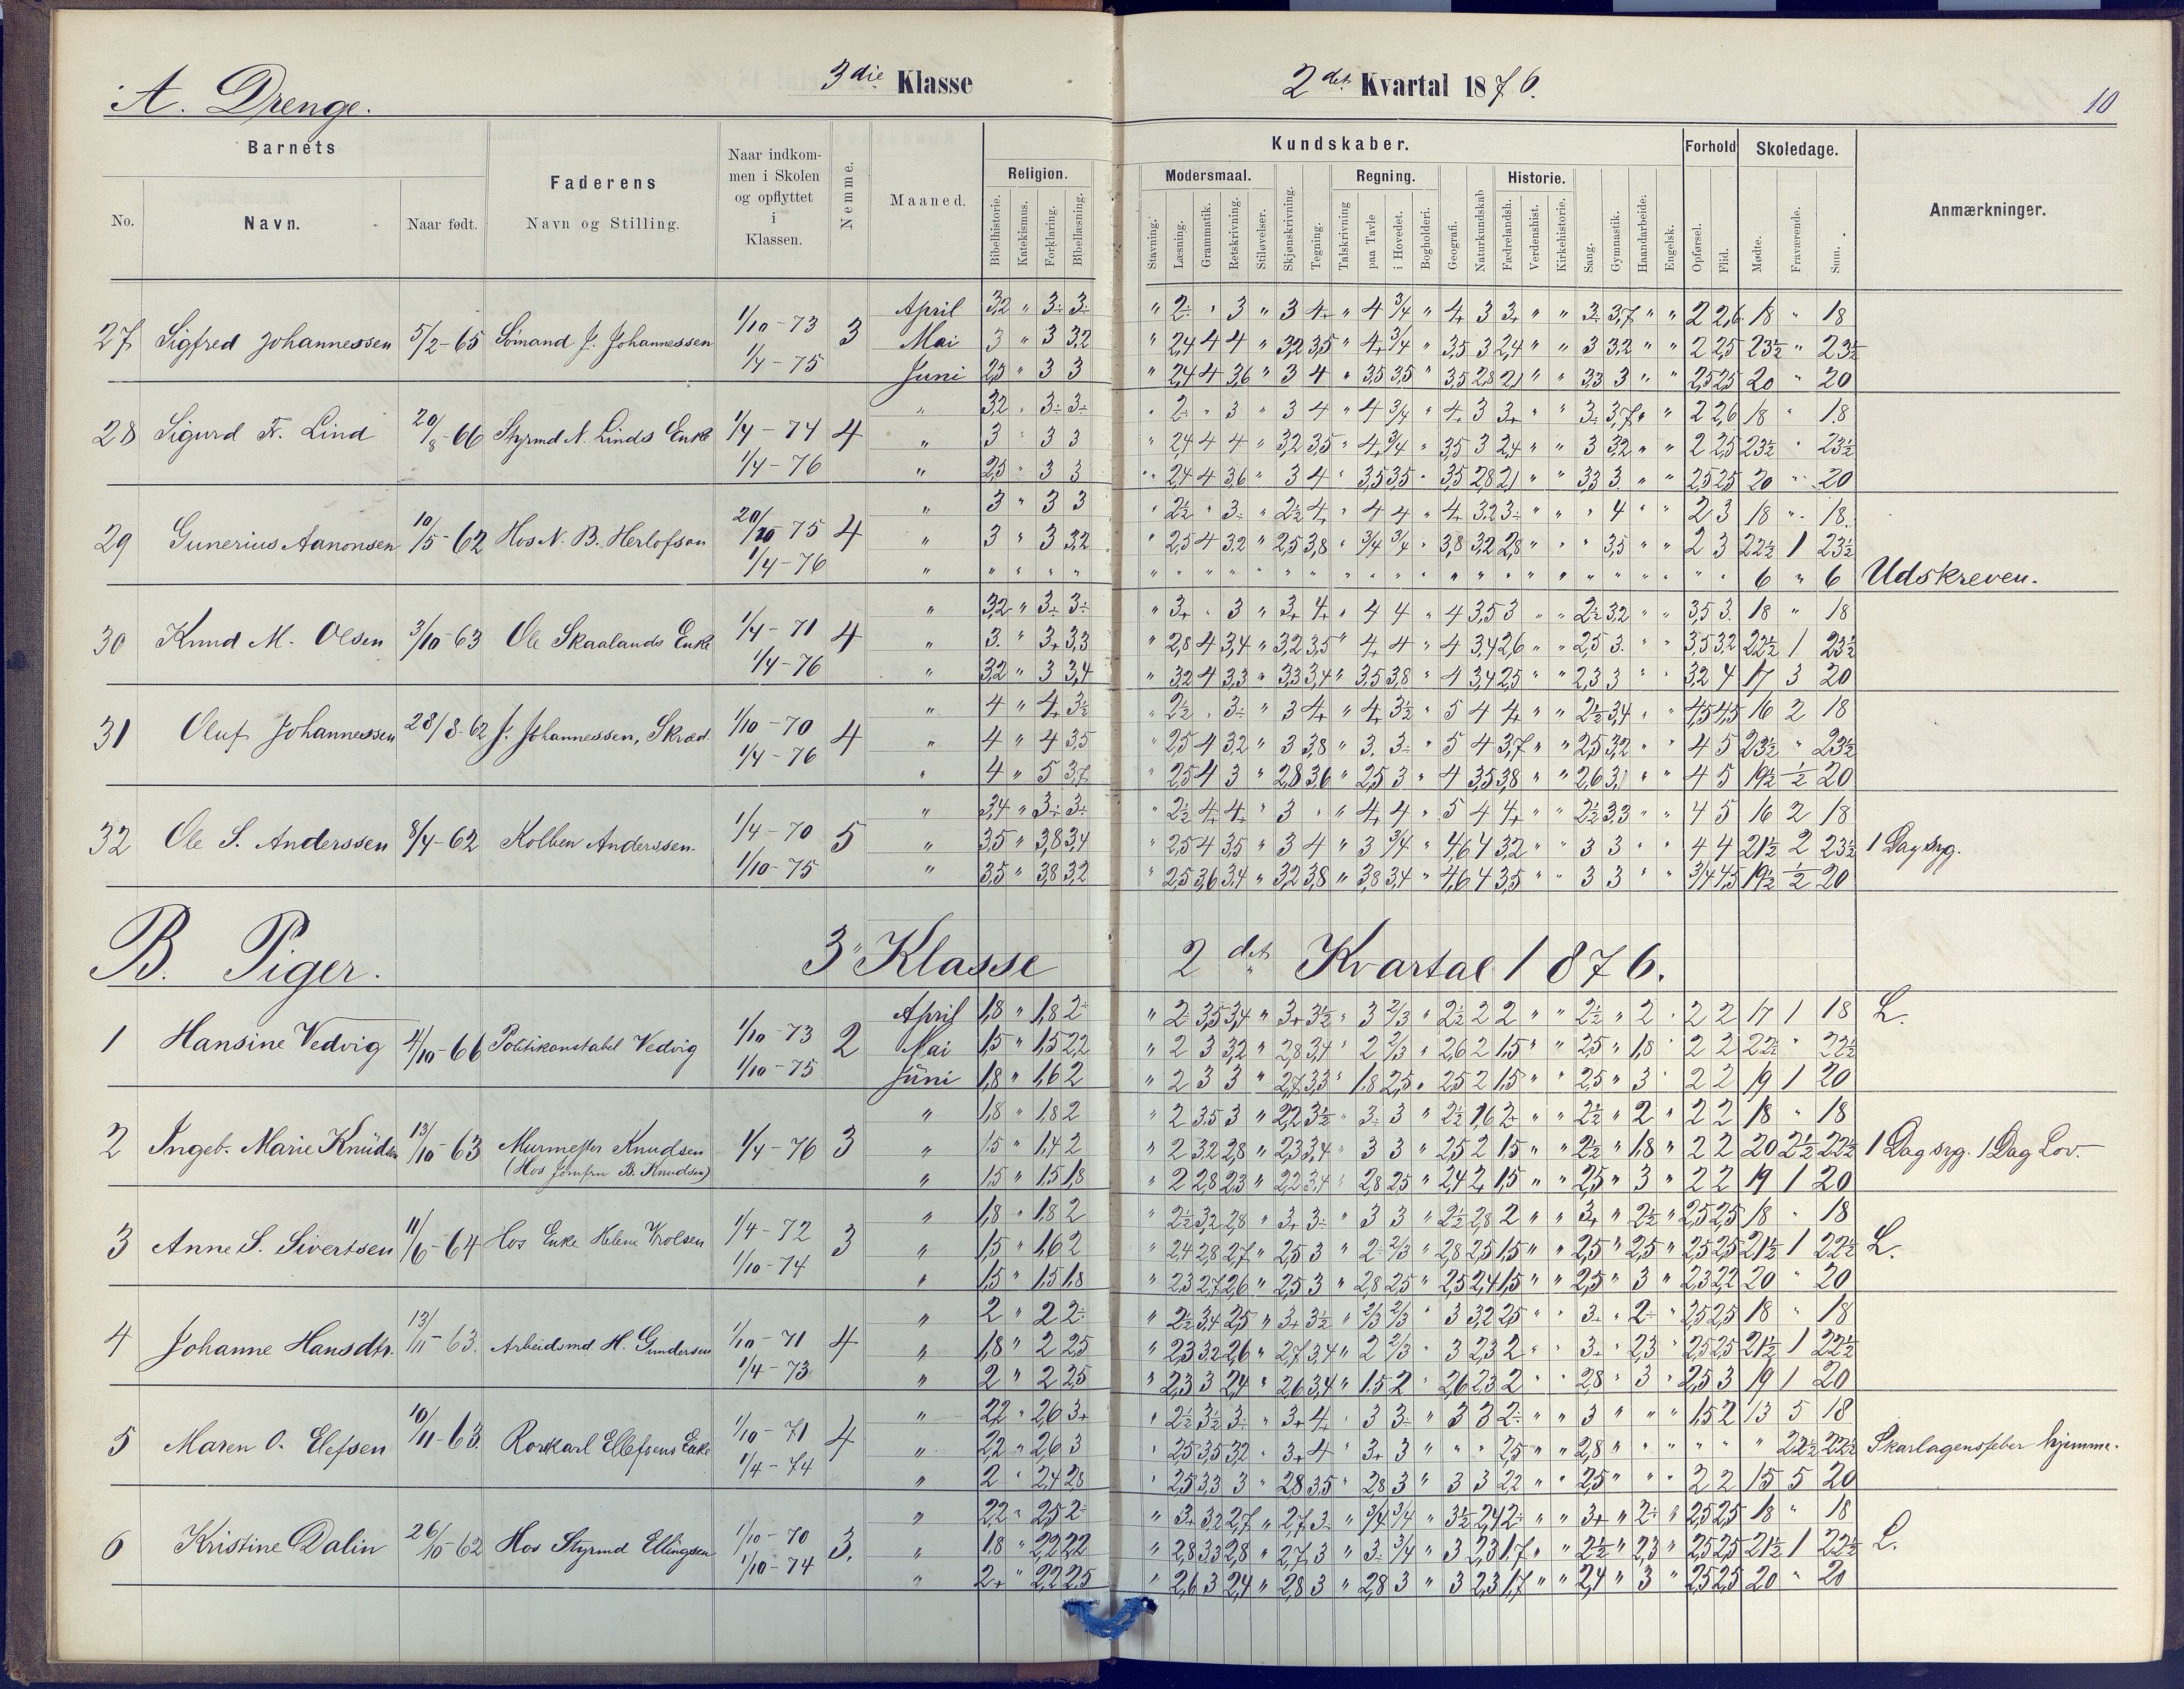 3die Klasse
2det Kvartal 1876.
10
A. Drenge.
Barnets
Faderens
Naar indkommen i Skolen og opflyttet i Klassen.
Nemme.
Maaned.
Religion.
Kundskaber.
Forhold
Skoledage.
Anmærkninger.
No.
Navn.
Naar født.
Navn og Stilling.
Bibelhistorie.
Katekismus.
Forklaring.
Bibellæsning.
Modersmaal.
Regning.
Historie.
Stavning.
Læsning.
Grammatik.
Retskrivning.
Stiløvelser.
Skjønskrivning.
Tegning.
Talskrivning
paa Tavle
i Hovedet.
Bogholderi.
Geografi.
Naturkundskab
Fædrelandsh.
Verdenshist.
Kirkehistorie.
Sang.
Gymnastik.
Haandarbeide.
Engelsk.
Opførsel.
Flid.
Mødte.
Fraværende.
Sum.
27 Sigfred Johannessen 5/2-65 Sømand J. Johannessen 1/10-73 1/4-75 3
April 3,2 " 3÷ 3÷ " 2÷ " 3 " 3 4+ " 4 3/4 " 4+ 3 3+ " " 3÷ 3,7 " " 2 2,6 18 " 18
Mai 3 " 3 3,2 " 2,4 4 4 " 3,2 3,5 " 4+ 3/4 " 3,5 3 2,4 " " 3 3,2 " " 2 2,5 23½ " 23½
Juni 2,5 " 3 3 " 2,4 4 3,6 " 3 4 " 3,5 3,5 " 3,5 2,8 2,1 " " 3,3 3 " " 2,5 2,5 20 " 20
28 Sigurd F. Lind 20/8-66 Styrmd N. Linds Enke 1/4-74 1/4-76 4
" 3,2 " 3÷ 3÷ " 2÷ " 3 " 3 4 " 4 3/4 " 4+ 3 3+ " " 3÷ 3,7 " " 2 2,6 18 " 18
" 3 " 3 3 " 2,4 4 4 " 3,2 3,5 " 4+ 3/4 " 3,5 3 2,4 " " 3 3,2 " " 2 2,5 23½ " 23½
" 2,5 " 3 3 " 2,4 4 3,6 " 3 4 " 3,5 3,5 " 3,5 2,8 2,1 " " 3,3 3 " " 2,5 2,5 20 " 20
29 Gunerius Aanonsen 10/5-62 Hos N. B. Herlofson 20/10 75 1/4-76 4
" 3 " 3 3 " 2½ " 3÷ " 2½ 4+ " 4 4 " 4+ 3,2 3÷ " " " 4 " " 2 3 18 " 18
" 3 " 3 3,2 " 2,5 4 3,2 " 2,5 3,8 " 3/4 3/4 " 3,8 3,2 2,8 " " " 3,5 " " 2 3 22½ 1 23½
" " " " " " " " " " " " " " " " " " " " " " " " " " " 6 " 6 Udskreven.
30 Knud M. Olsen 3/10-63 Ole Skaalands Enke 1/4-71 1/4-76 4
" 3,2 " 3÷ 3÷ " 3+ " 3 " 3+ 4+ " 4 4 " 4 3,5 3 " " 2½ 3,2 " " 3,5 3 18 " 18
" 3 " 3+ 3,3 " 2,8 4 3,4 " 3,2 3,5 " 4+ 4 " 4 3,4 2,6 " " 2,5 3 " " 3,5 3,2 22½ 1 23½
" 3,2 " 3 3,4 " 3,2 4 3,3 " 3,3 3,4 " 3,5 3,8 " 4 3,4 2,5 " " 2,3 3 " " 3,2 4 17 3 20
31 Oluf Johannessen 28/8-62 J. Johannessen, Skræd. 1/10-70 1/4-76 4
" 4 " 4+ 3½ " 2½ " 3÷ " 3 4+ " 4+ 3½ " 5 4 4+ " " 2½ 3,4 " " 4,5 4,5 16 2 18
" 4 " 4 3,5 " 2,5 4 3,2 " 3 3,8 " 3 3÷ " 5 4 3,7 " " 2,5 3,2 " " 4 5 23½ " 23½
" 4 " 5 3,7 " 2,5 4 3 " 2,8 3,6 " 2,5 3 " 4 3,5 3,8 " " 2,6 3,1 " " 4 5 19½ ½ 20
32 Ole S. Anderssen 8/4-62 Kolben Anderssen. 1/4-70 1/10-75 5
" 3,4 " 3÷ 3÷ " 2½ 4+ 4+ " 3 " " 4+ 4 " 5 4 4+ " " 2½ 3,3 " " 4 5 16 2 18
" 3,5 " 3,8 3,4 " 2,5 4 3,5 " 3 4 " 3 3/4 " 4,6 4 3,2 " " 3 3 " " 4 4 21½ 2 23½ 1 Dag syg.
" 3,5 " 3,8 3,2 " 2,5 3,6 3,4 " 3,2 3,8 " 3,8 3,4 " 4,6 4 3,5 " " 3 3 " " 3/4 4,5 19½ ½ 20
B. Piger. 3" Klasse 2det Kvartal 1876.
1 Hansine Vedvig 4/10-66 Politikonstabel Vedvig 1/10-73 1/10-75 2
April 1,8 " 1,8 2÷ " 2÷ 3,5 3,4 " 3+ 3½ " 3 2/3 " 2½ 2 2 " " 2½ " 2 " 2 2 17 1 18 L.
Mai 1,5 " 1,5 2,2 " 2 3 3,2 " 2,8 3,4 " 2 2/3 " 2,6 2 1,5 " " 2,5 " 1,8 " 2 2 22½ " 22½
Juni 1,8 " 1,6 2 " 2 3 3 " 2,7 3,3 " 1,8 2,5 " 2,5 2 1,5 " " 2,5 " 3 " 2 2 19 1 20
2 Ingeb. Marie Knudsen 13/10-63 Murmester Knudsen (Hos Jomfru B. Knudsen) 1/4-76 3
" 1,8 " 1,8 2 " 2 3,5 3 " 2,2 3½ " 3÷ 3 " 2½ 1,6 2+ " " 2½ " 2 " 2 2 18 " 18
" 1,5 " 1,4 2 " 2 3,2 2,8 " 2,3 3,4 " 3 3 " 2,5 2 1,5 " " 2½ " 1,8 " 2 2 20 2½ 22½ 1 Dag syg. 1 Dag Lov.
" 1,5 " 1,5 1,8 " 2 2,8 2,3 " 2,2 3,4 " 2,8 2,5 " 2,4 2+ 1,5 " " 2,5 " 3 " 2 2 19 1 20
3 Anne S. Sivertsen 11/6-64 Hos Enke Helene 1/4-72 1/10-74 3
" 1,8 " 1,8 2 " 2½ 3,2 2,8 " 3+ 3÷ " 3 3 " 2½ 2,8 2 " " 3+ " 2½ " 2,5 2,5 18 " 18
" 1,5 " 1,6 2 " 2,4 2,8 2,7 " 2,5 3 " 2÷ 2/3 " 2,8 2,5 1,5 " " 2,5 " 2,5 " 2,5 2,5 21½ 1 22½ L.
" 1,5 " 1,5 1,8 " 2,3 2,7 2,6 " 2,5 3 " 2,8 2,5 " 2,5 2,4 1,5 " " 2,5 " 3 " 2,3 2,2 20 " 20
4 Johanne Hansdtr. 13/11-63. Arbeidsmd H. Gundersen 1/10-71 1/4-73 4
" 2 " 2 2÷ " 2½ 3,4 2,5 " 3+ 3½ " 2/3 2/3 " 3 3,2 2,5 " " 3+ " 2÷ " 2,5 2,5 18 " 18
" 1,8 " 2 2,5 " 2,3 3,2 2,6 " 2,7 3,4 " 2 2/3 " 3 2,3 2 " " 3+ " 2,3 " 2,5 2,5 21½ 1 22½
" 2 " 2 2,5 " 2,3 3 2,4 " 2,6 3,4 " 1,5 2 " 2,6 2,3 2 " " 2,8 " 3 " 2,5 3 19 1 20
5 Maren O. Elefsen 10/11-63. Rorkarl Ellefsens Enke 1/10-71 1/4-74 4
" 2,2 " 2,6 3+ " 2½ 3½ 3÷ " 3+ 4+ " 3 3÷ " 3 3 2÷ " " 3 " " " 1,5 2 13 5 18
" 2,2 " 2,6 3 " 2,5 3,5 3,2 " 3+ 4 " 3+ 3 " " " 2,5 " " 2,8 " " " " " " 22½ 22½ Skarlagensfeber hjemme.
" 2 " 2,4 2,8 " 2,5 3,3 3 " 2,8 3,5 " 2,8 3 " 3 3 2,2 " " 2,5 " " " 2 2 15 5 20
6 Kristine Dalin 26/10-62 Hos Styrmd Ellingsen 1/10-70 1/10-74 3.
" 2,2 " 2,5 2÷ " 3+ 3,2 2,7 " 2,7 3÷ " 3/4 3/4 " 3½ 2,4 2÷ " " 3+ " 2÷ " 2,5 2,5 18 " 18
" 1,8 " 2,2 2,2 " 2,8 3,3 2,8 " 2,7 3 " 3÷ 3/4 " 3 2,3 1,7 " " 2½ " 2,3 " 2,5 2,5 21½ 1 22½ L.
" 2+ " 2,2 2,5 " 2,6 3 2,4 " 2,8 3 " 2,8 3 " 3 2,3 1,7 " " 2,4 " 3 " 2,5 2,5 20 " 20